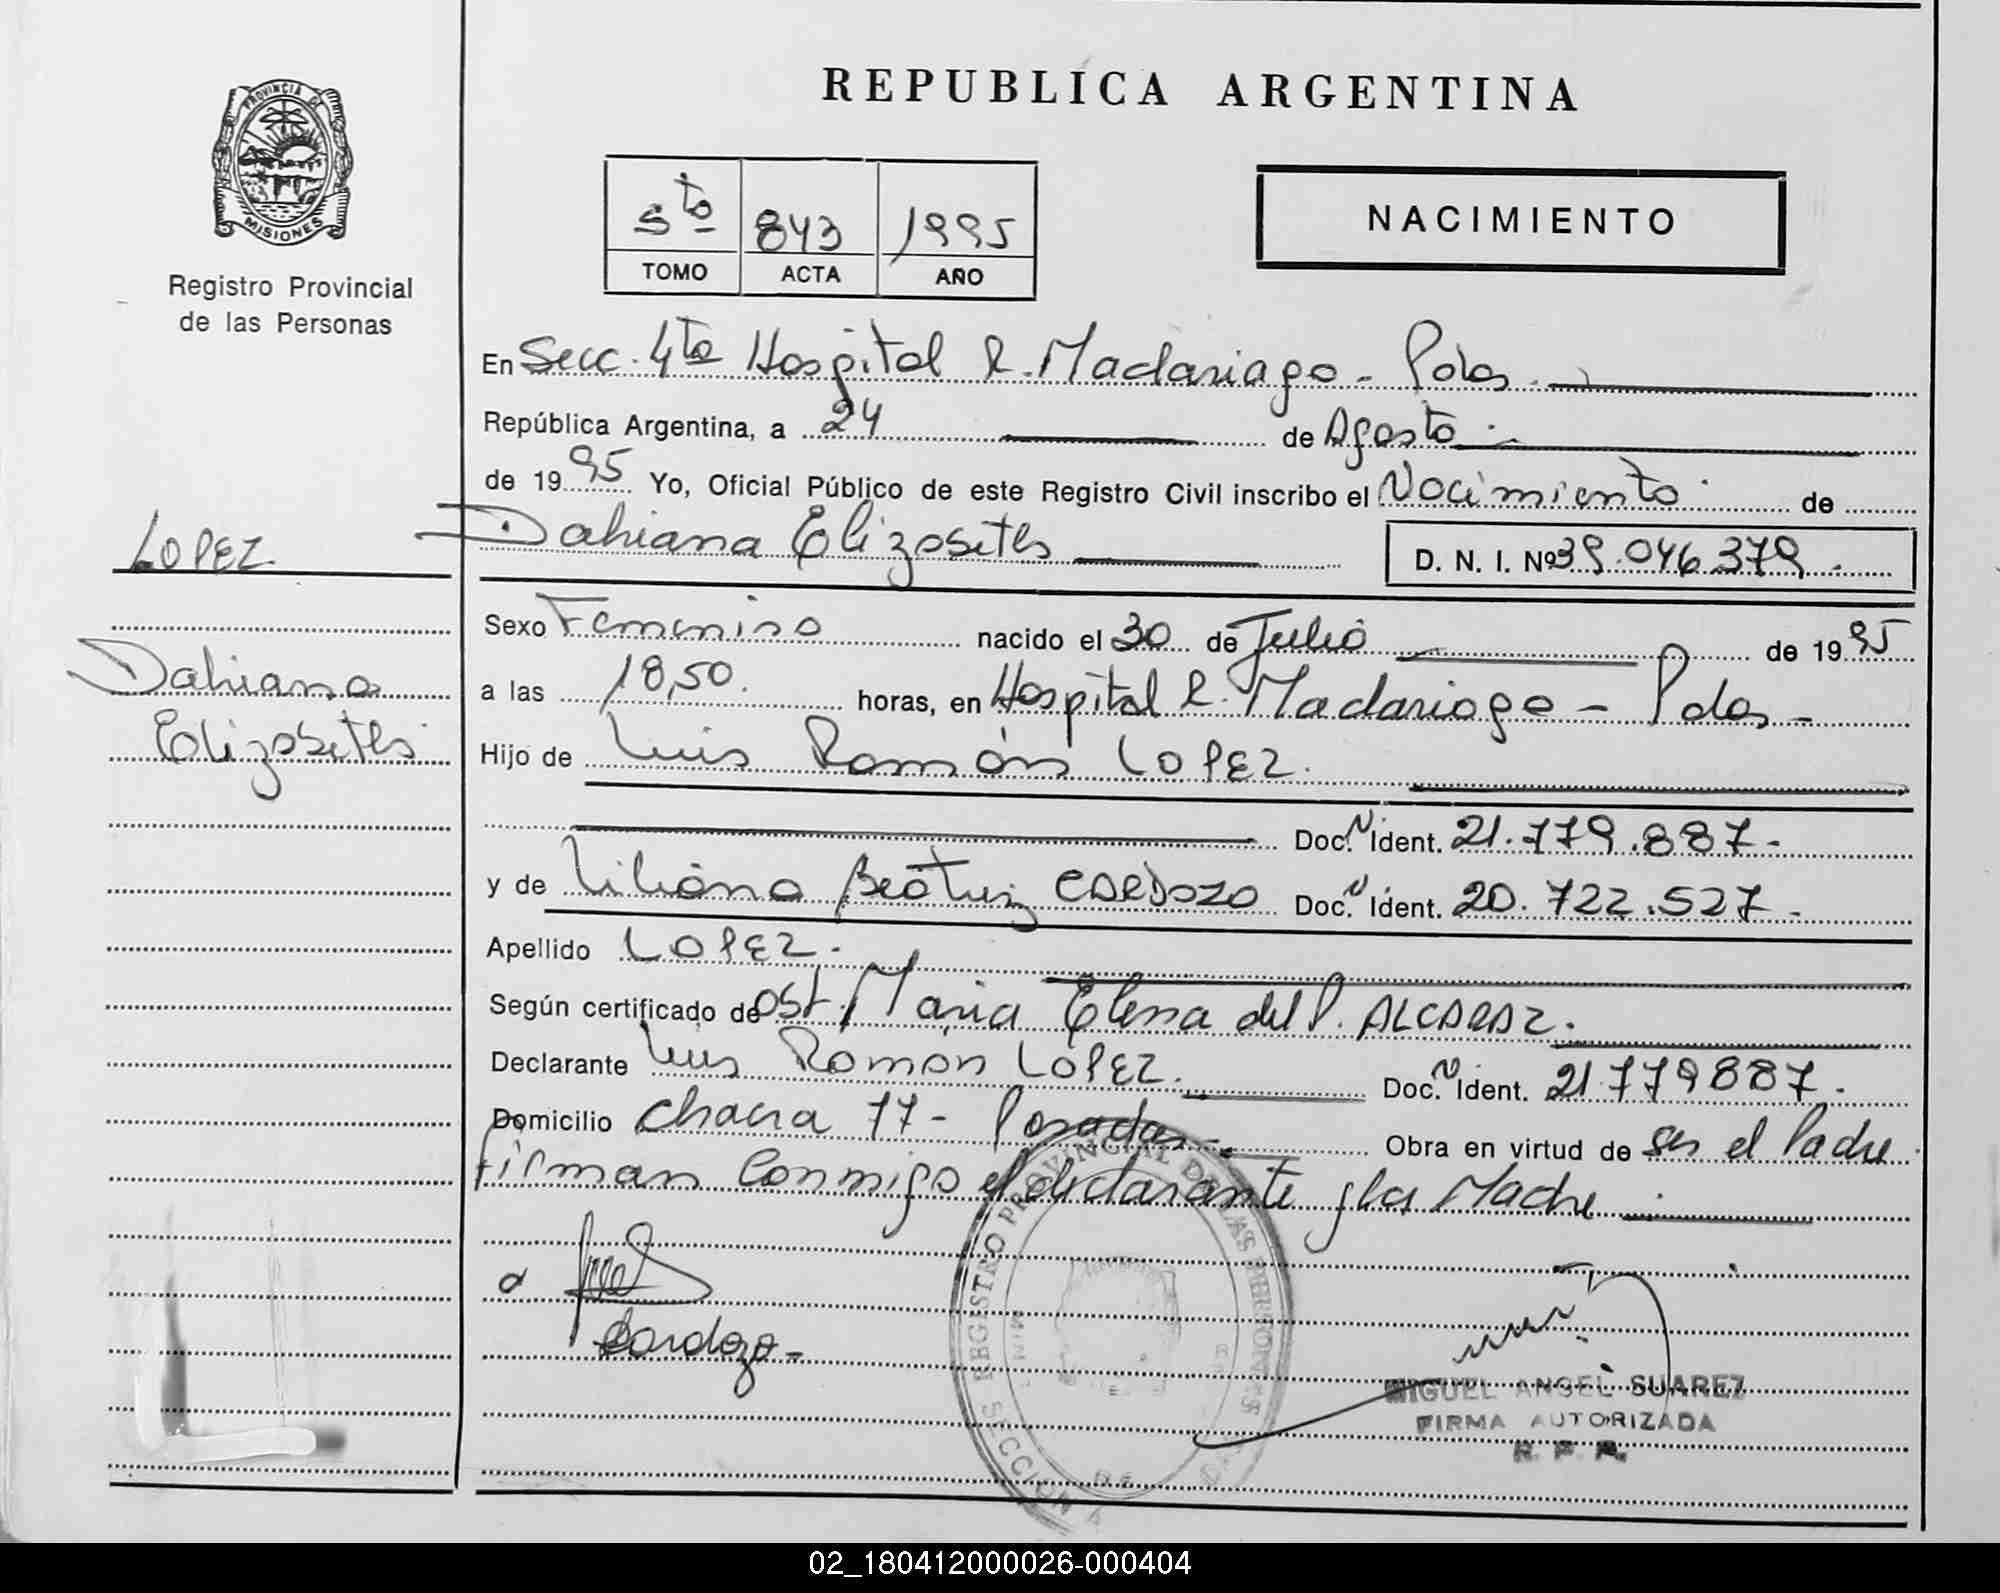 REPUBLICA ARGENTINA
PROVINCIA DE
MISIONES
Registro Provincial
de las Personas
5to 843 1995
TOMO ACTA AÑO
NACIMIENTO
En Secc. 4ta Hospital R. Madariaga - Pdas.
República Argentina, a 24 de Agosto
de 1995 Yo, Oficial Público de este Registro Civil inscribo el Nacimiento de
Dahiana Elizabeth D. N. I. Nº 39.046.379.
LOPEZ
Dahiana
Elizabeth
Sexo Femenino nacido el 30 de Julio de 1995
a las 18,50. horas, en Hospital R. Madariaga - Pdas -
Hijo de Luis Ramón LOPEZ.
Doc. N Ident. 21.779.887-
y de Liliana Beatriz CARDOZO Doc. N Ident. 20.722.527-
Apellido LOPEZ.
Según certificado de Obst. Maria Elena del P. ALCARAZ.
Declarante Luis Ramón LOPEZ. Doc. N Ident. 21.779887.
Domicilio Chacra 77 - Posadas - Obra en virtud de ser el Padre
firman conmigo el declarante y la Madre
Cardozo -
REGISTRO PROVINCIAL DE LAS PERSONAS
SECCION 4
MIGUEL ANGEL SUAREZ
FIRMA AUTORIZADA
R. P. P.
02_180412000026-000404